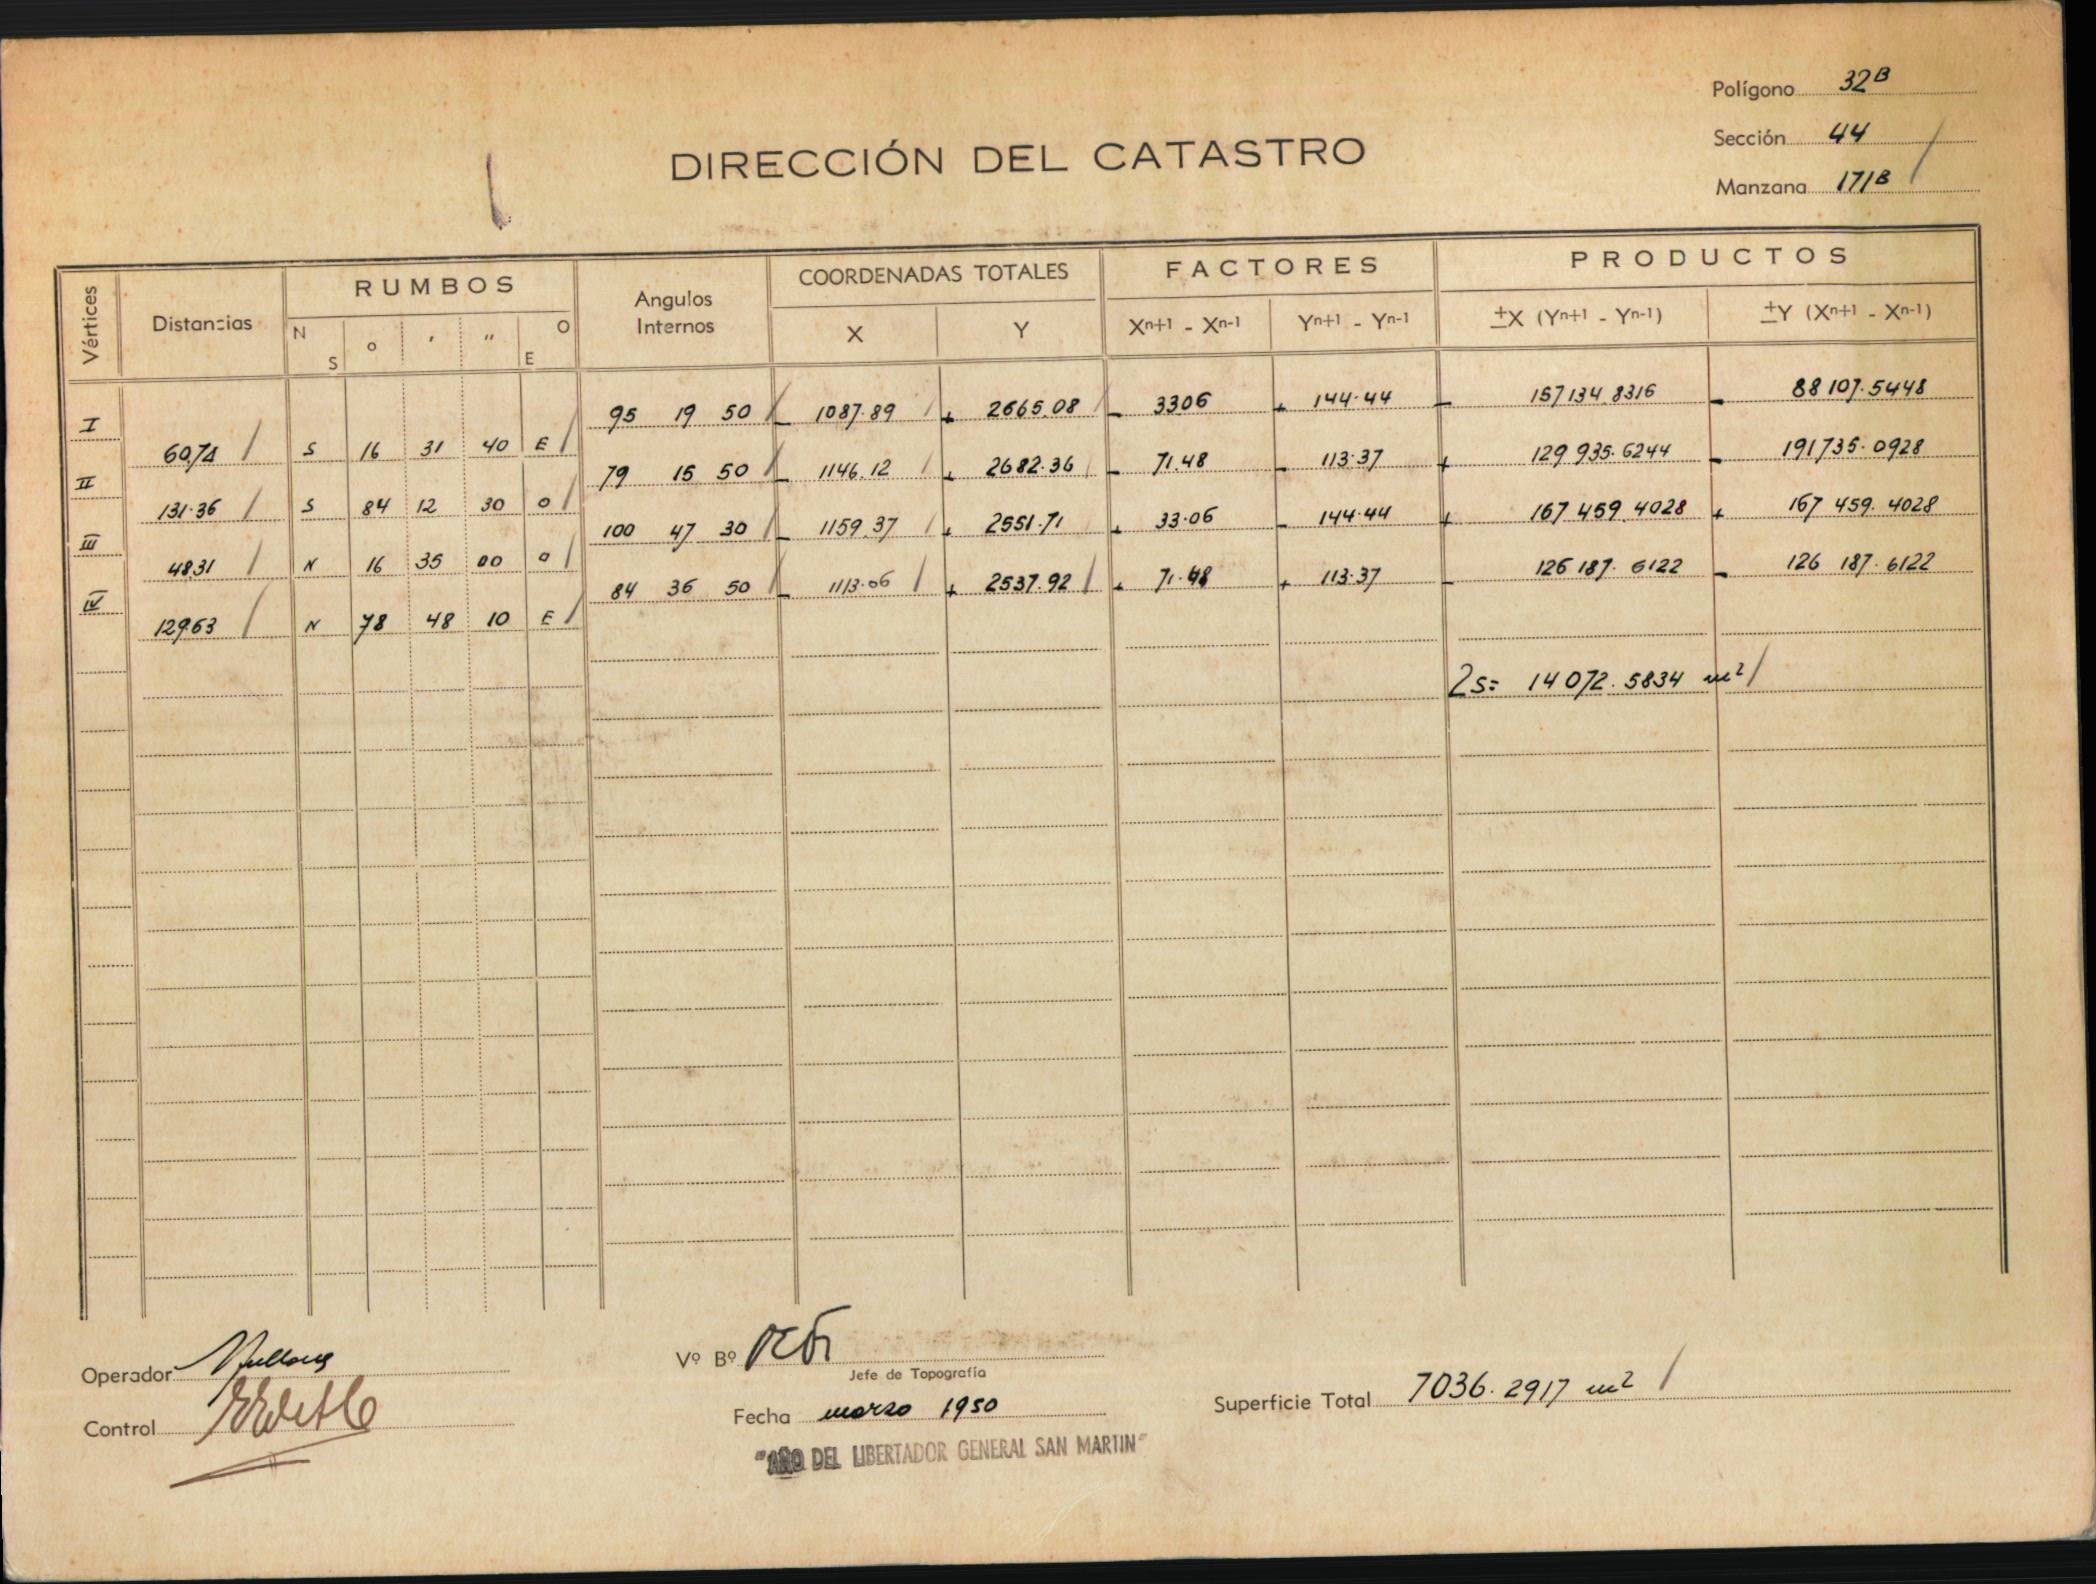 Polígono 32B
Sección 44
Manzana 171B
DIRECCIÓN DEL CATASTRO
Vértices Distancias RUMBOS Angulos Internos COORDENADAS TOTALES FACTORES PRODUCTOS
N S o ' " O E X Y Xn+1 - Xn-1 Yn+1 - Yn-1 ±X (Yn+1 - Yn-1) ±Y (Xn+1 - Xn-1)
I 95 19 50 - 1087.89 + 2665.08 - 3306 + 144.44 - 157134.8316 - 88107.5448
60.74 S 16 31 40 E
II 79 15 50 - 1146.12 + 2682.36 - 71.48 - 113.37 + 129935.6244 - 191735.0928
131.36 S 84 12 30 O
III 100 47 30 - 1159.37 + 2551.71 + 33.06 - 144.44 + 167459.4028 + 167459.4028
48.31 N 16 35 00 O
IV 84 36 50 - 1113.06 + 2537.92 + 71.48 + 113.37 - 126187.6122 - 126187.6122
129.63 N 78 48 10 E
2s= 14072.5834 m2
Operador
Control
Vº Bº
Jefe de Topografía
Fecha marzo 1950
"AÑO DEL LIBERTADOR GENERAL SAN MARTIN"
Superficie Total 7036.2917 m2